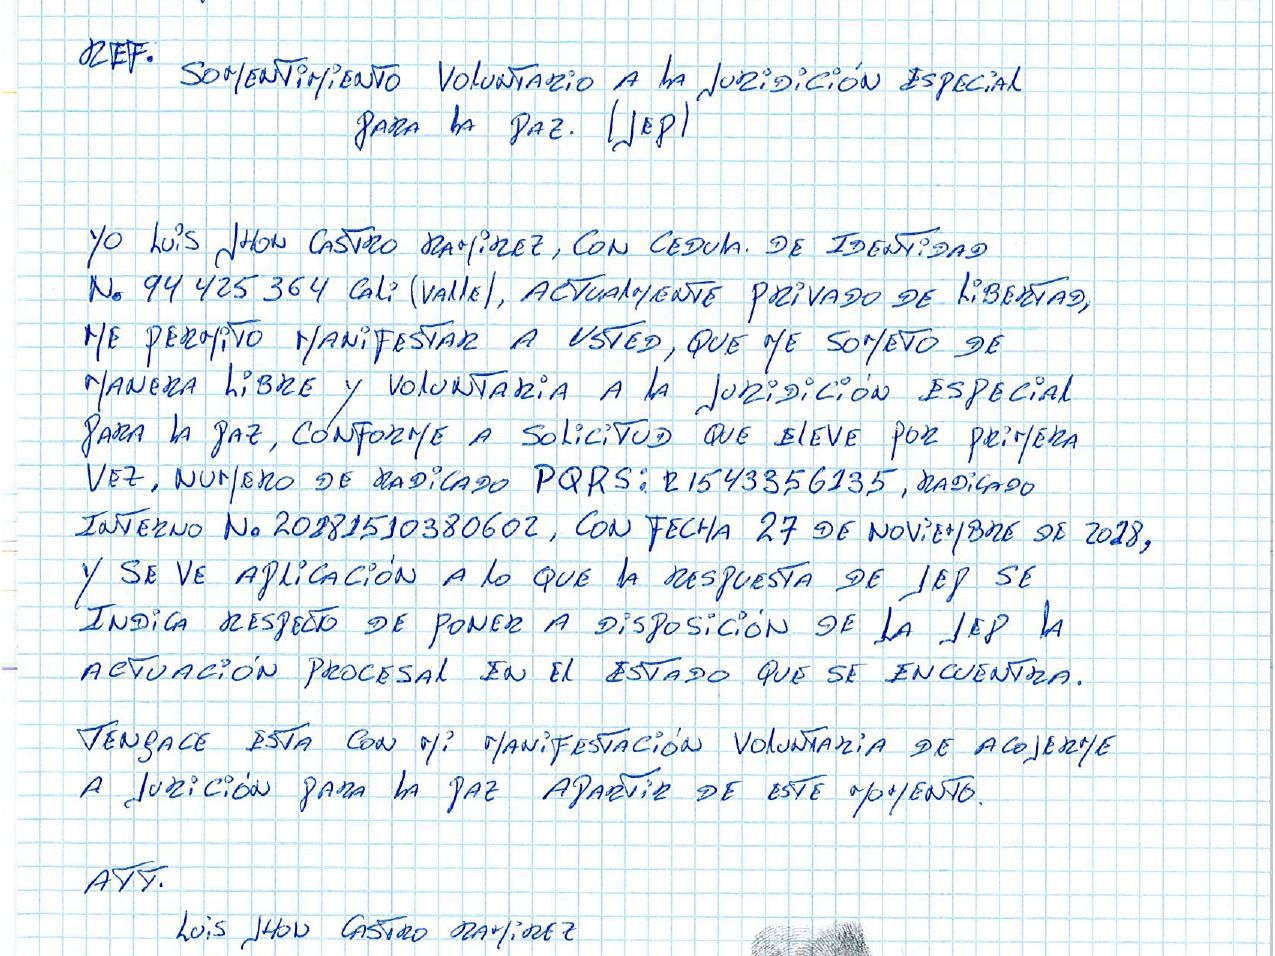 REF.
SOMENTIMIENTO VOLUNTARIO A LA JURIDICIÓN ESPECIAL
PARA LA PAZ. (JEP)
YO LUIS JHON CASTRO RAMIREZ, CON CEDULA. DE IDENTIDAD
No 94 425 364 CALI (VALLE), ACTUALMENTE PRIVADO DE LIBERTAD,
ME PERMITO MANIFESTAR A USTED, QUE ME SOMETO DE
MANERA LIBRE Y VOLUNTARIA A LA JURIDICIÓN ESPECIAL
PARA LA PAZ, CONFORME A SOLICITUD QUE ELEVE POR PRIMERA
VEZ, NUMERO DE RADICADO PQRS: R1543356135, RADICADO
INTERNO No 20181510380602, CON FECHA 27 DE NOVIEMBRE DE 2018,
Y SE VE APLICACIÓN A LO QUE LA RESPUESTA DE JEP SE
INDICA RESPECTO DE PONER A DISPOSICIÓN DE LA JEP LA
ACTUACIÓN PROCESAL EN EL ESTADO QUE SE ENCUENTRA.
TENGACE ESTA CON MI MANIFESTACIÓN VOLUNTARIA DE ACOJERME
A JURICIÓN PARA LA PAZ APARTIR DE ESTE MOMENTO.
ATT.
LUIS JHON CASTRO RAMIREZ